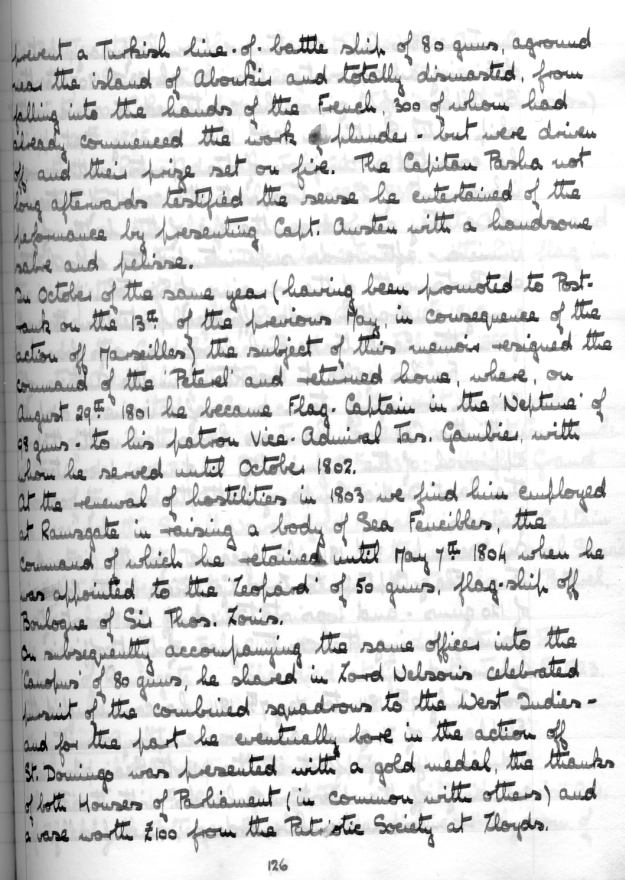 prevent a Turkish line-of-battle ship of 80 guns, aground
near the island of Aboukir and totally dismasted, from
falling into the hands of the French, 300 of whom had
already commenced the work of plunder - but were driven
off and their prize set on fire. The Capitan Pasha not
long afterwards testified the sense he entertained of the
peformance by presenting Capt. Austen with a handsome
sabre and pelisse.
In October of the same year (having been promoted to Post-
rank on the 13th of the previous May, in consequence of the
action off Marseilles) the subject of this memoir resigned the
command of the 'Peterel' and returned home, where, on
August 29th 1801 he became Flag-Captain in the 'Neptune' of
98 guns - to his patron Vice-Admiral Jas. Gambier, with
whom he served until October 1802.
At the renewal of hostilities in 1803 we find him employed
at Ramsgate in raising a body of Sea Fencibles, the
command of which he retained until May 7th 1804 when he
was appointed to the 'Leopard' of 50 guns, flag-ship off
Boulogne of Sir Thos: Louis.
On subsequently accompanying the same officer into the
'Canopus' of 80 guns, he shared in Lord Nelson's celebrated
pursuit of the combined squadrons to the West Indies -
and for the part he eventually bore in the action off
St. Domingo was presented with a gold medal, the thanks
of both Houses of Parliament (in common with others) and
a vase worth £100 from the Patriotic Society at Lloyds.
126